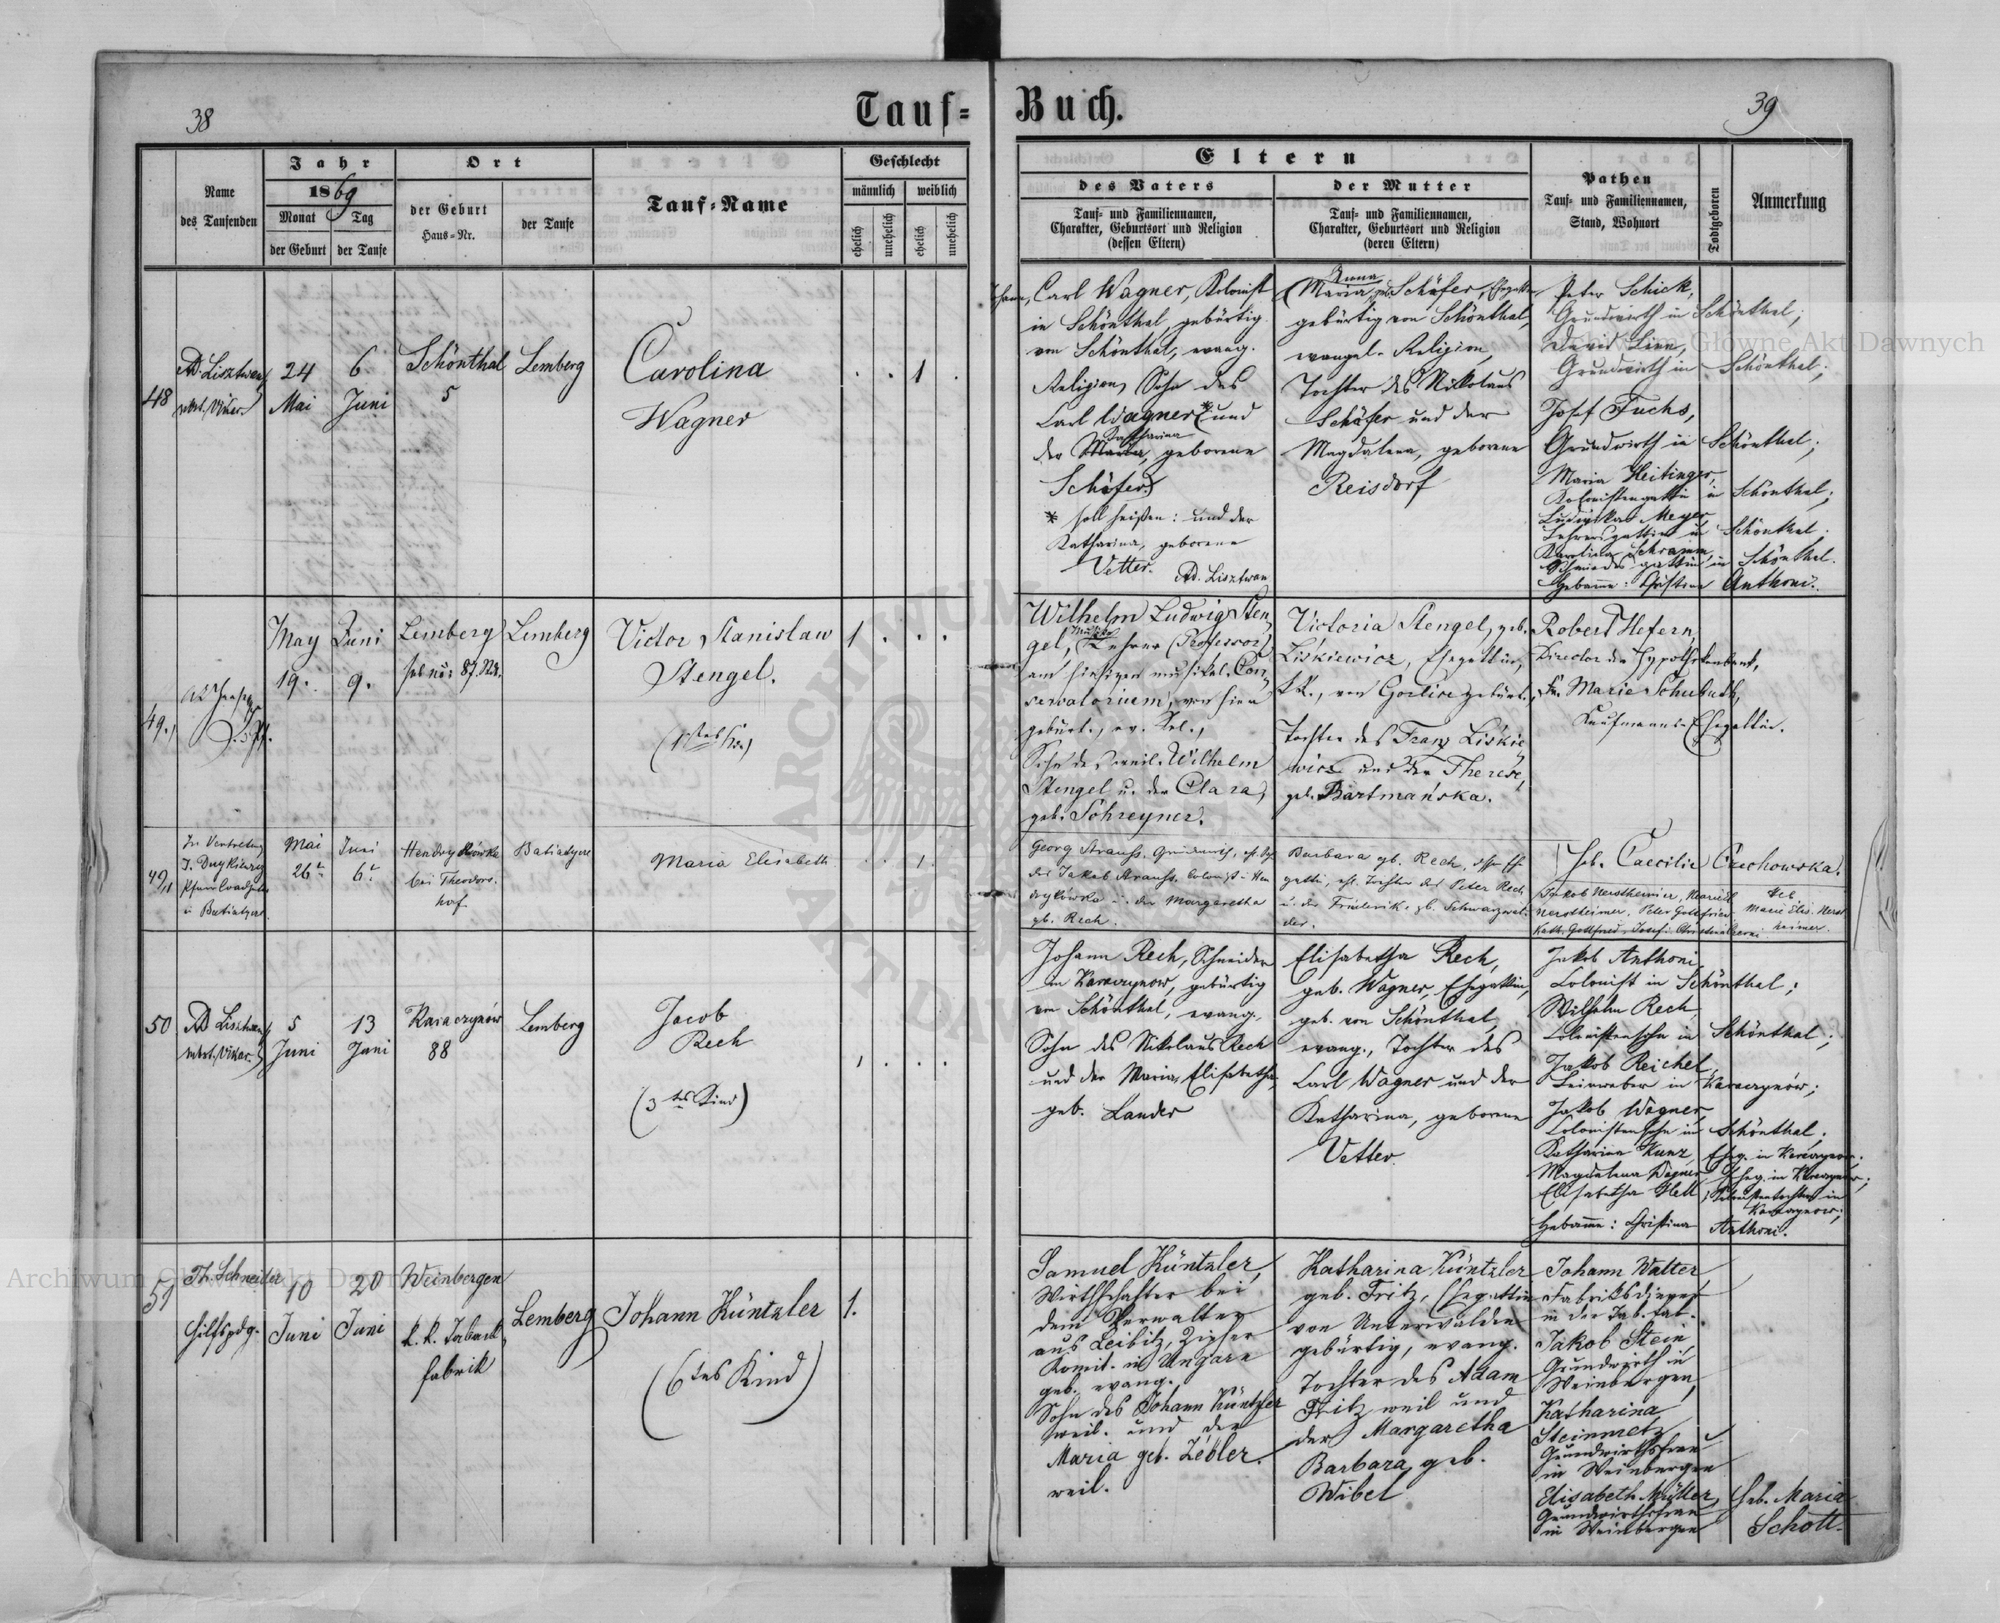 38
Tauf-
Buch.
39
Jahr
Ort
Geschlecht
Eltern
Name
des Taufenden
1869
der Geburt
Haus-Nr.
der Taufe
Tauf-Name
männlich
weiblich
des Vaters
der Mutter
Pathen
Tauf- und Familiennamen,
Stand, Wohnort
Todtgeboren
Anmerkung
Monat
Tag
der Geburt
der Taufe
ehelich
unehelich
ehelich
unehelich
Tauf- und Familiennamen,
Charakter, Geburtsort und Religion
(dessen Eltern)
Tauf- und Familiennamen,
Charakter, Geburtsort und Religion
(deren Eltern)
48
Ad. Lisztwan
Vikar
24
Mai
6
Juni
Schönthal
5
Lemberg
Carolina
Wagner
1
Carl Wagner, Kolonist
in Schönthal, gebürtig
von Schönthal, evang.
Religion, Sohn des
Carl Wagner * und
Katharina
der Maria, geborene
Schäfer)
* soll heißen: und der
Katharina, geborene
Vetter. Ad. Lisztwan
Anna
Maria, geb. Schäfer, Ehegattin
gebürtig von Schönthal,
evangel. Religion,
Tochter des Nikolaus
Schäfer und der
Magdalena, geborene
Reisdorf
Peter Schick,
Grundwirth in Schönthal;
Grundwirth in Schönthal;
Josef Fuchs,
Grundwirth in Schönthal;
Maria Heitinger,
Kolonistengattin in Schönthal;
Ludwika Meyer
Lehrersgattin in Schönthal,
Karolina Schramm,
Schmiedsgattin in Schönthal.
Hebamme: Christina Anthoni.
49.
May
19.
Juni
9.
Lemberg
87.
Lemberg
Victor Stanislaw
Stengel.
1
Wilhelm Ludwig Sten-
gel, Musik Lehrer (Professor)
am hiesigen musikal. Con-
servatorium, von hier
gebürt., ev. Rel.,
Sohn des weil. Wilhelm
Stengel u. der Clara,
geb. Schreyner.
Victoria Stengel, geb.
Liskiewicz, Ehegattin,
von Gorlice gebürt.,
Tochter des Franz Liskie-
wicz und der Therese,
geb. Bartmańska.
Robert Hefern,
Director der Hypothekenbank,
Fr. Marie Schubuth,
Kaufmanns-Ehegattin.
Heb. Caecilie Czechowska.
In Vertretung
Mai
26
Juni
6
Hendrykówka
bei Theodors-
hof
Batiatycze
Maria Elisabeth
1
Georg Strauss,
des Jakob Strauss, Colonist in Hen-
drykówka u. der Margaretha
gb. Rech.
Barbara gb. Rech,
gattin, Tochter des Peter Rech
u. der Friederike gb. Schwarzwal-
der.
Jakob Nerotheimer,
Nerotheimer, Peter Gottfried
Kath. Gottfried, Josef
Heb.
Marie Elis. Nerot-
heimer.
50
Ad. Lisztwan
Vikar
5
Juni
13
Juni
Karaczynów
88
Lemberg
Jacob
Rech
(3tes Kind)
1
Johann Rech, Schneider
in Karaczynow, gebürtig
von Schönthal, evang.,
Sohn des Nikolaus Rech
und der Maria Elisabetha,
geb. Lander
Elisabetha Rech,
geb. Wagner, Ehegattin,
geb. von Schönthal,
evang., Tochter des
Carl Wagner und der
Katharina, geborene
Vetter
Jakob Anthoni,
Colonist in Schönthal;
Wilhelm Rech,
Colonistensohn in Schönthal;
Jakob Reichel,
Leinweber in Karaczynów;
Jakob Wagner,
Colonistensohn in Schönthal;
Katharina Kunz, Eheg. in Karaczynow;
Magdalena Wagner, Eheg. in Karaczynow;
Elisabetha Hell, Kolonistentochter in
Karaczynow;
Hebamme: Christina Anthoni.
51
Th. Schneider
Hilfspdg.
10
Juni
20
Juni
Weinbergen
k. k. Taback
fabrik
Lemberg
Johann Küntzler
(6tes Kind)
1.
Samuel Küntzler,
Wirthschafter bei
dem Verwalter
aus Leibitz, Zipser
Komit. in Ungarn
geb. evang.
Sohn des Johann Küntzler
weil. und der
Maria geb. Zebler.
weil.
Katharina Küntzler
geb. Fritz, Ehegattin
von Unterwalden
gebürtig, evang.
Tochter des Adam
Fritz weil und
der Margaretha
Barbara, geb.
Wibel
Johann Walter
Fabriksdiener
in der Tab. fab.
Jakob Stein,
Grundwirth in
Weinbergen,
Katharina
Steinmetz
Grundwirthsfrau
in Weinbergen
Elisabeth Müller,
Grundwirthsfrau
in Weinbergen
Heb. Maria
Schott.
Archiwum Główne Akt Dawnych
Archiwum Główne Akt Dawnych